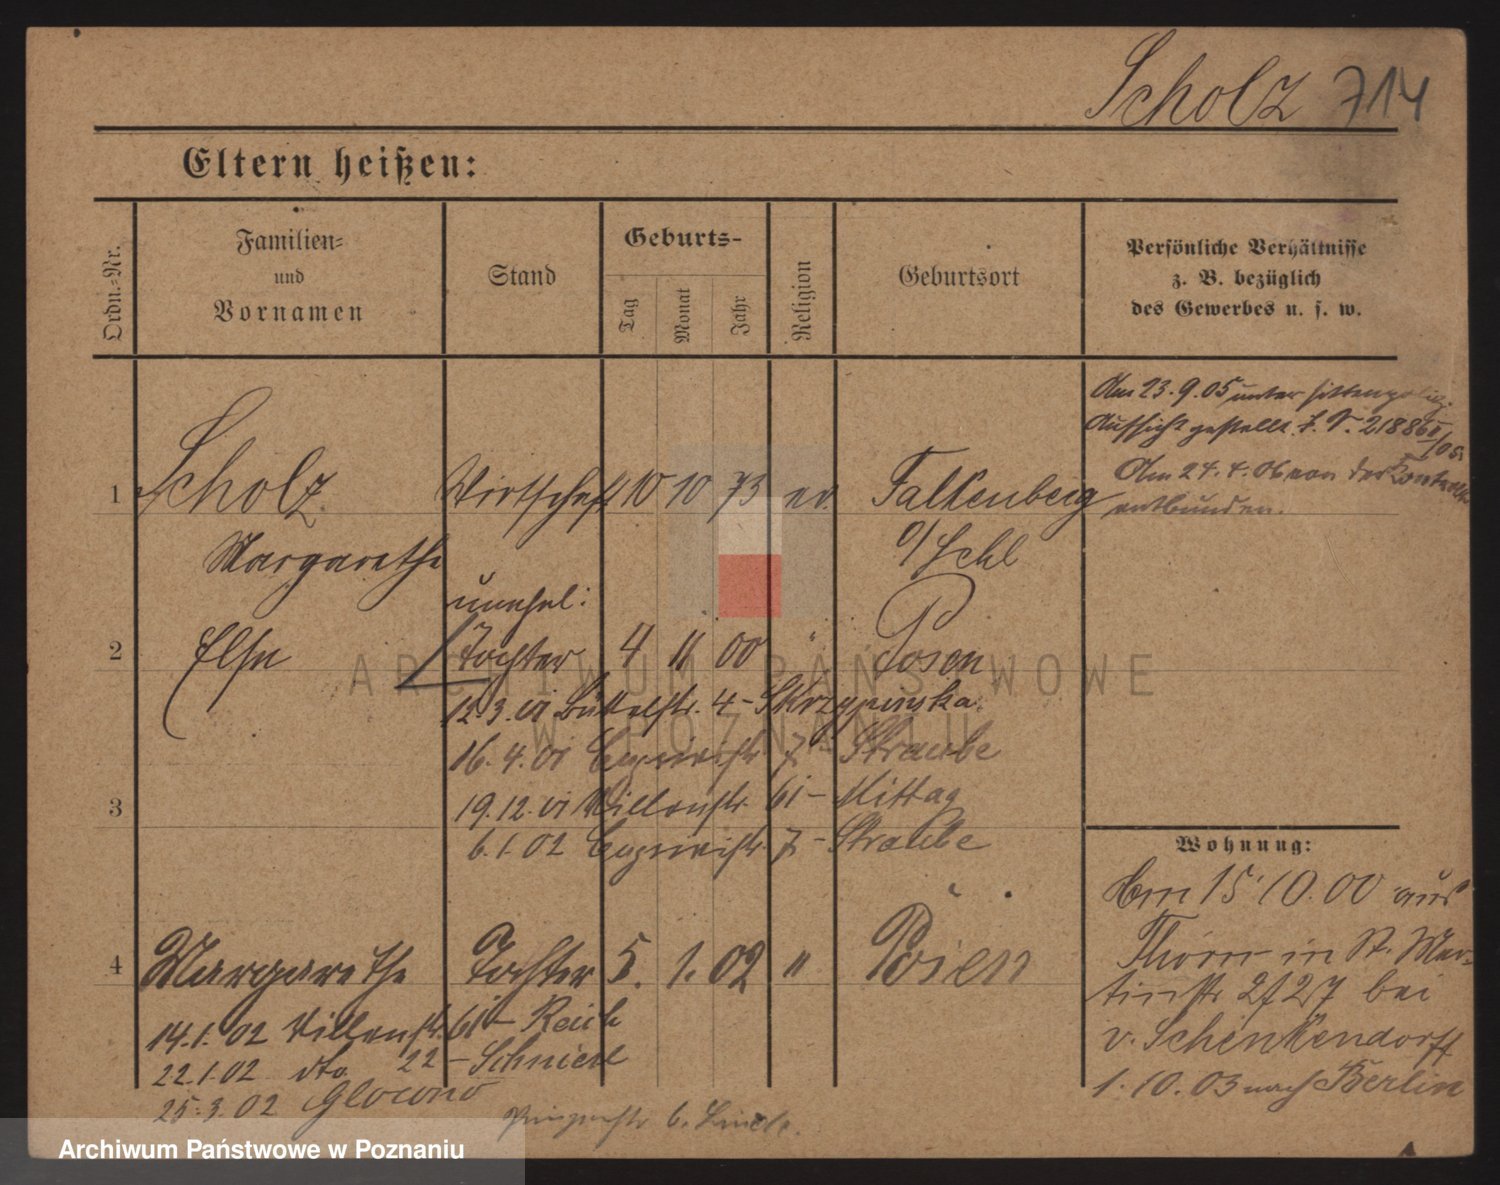 Scholz 714
Eltern heißen:
Ordn.-Nr.
Familien-
und
Vornamen
Stand
Geburts-
Tag
Monat
Jahr
Religion
Geburtsort
Persönliche Verhältnisse
z. B. bezüglich
des Gewerbes u. s. w.
Am 23.9.05 unter sittenpoliz.
Aufsicht gestellt.
Am 24.4.06 von der Kontrolle
entbunden.
1 Scholz Wirtschaft 10 10 73 ev. Falkenberg
Margarethe o/Schl
unehel:
2 Else Tochter 4 11 00 " Posen
12.3.01 Büttelstr. 4 - Skrzypinska
16.4.01 7 - Straube
3
19.12.01 61 - Mittag
6.1.02 7 - Straube
4 Margarethe Tochter 5. 1. 02 " Posen
14.1.02 61 - Reich
22.1.02 dto 22 -
25.3.02 6.
Wohnung:
Am 15.10.00 aus
Thorn in St. Mar-
tinstr bei
v. Schenkendorff
1.10.03 nach Berlin
ARCHIWUM PAŃSTWOWE
W POZNANIU
Archiwum Państwowe w Poznaniu